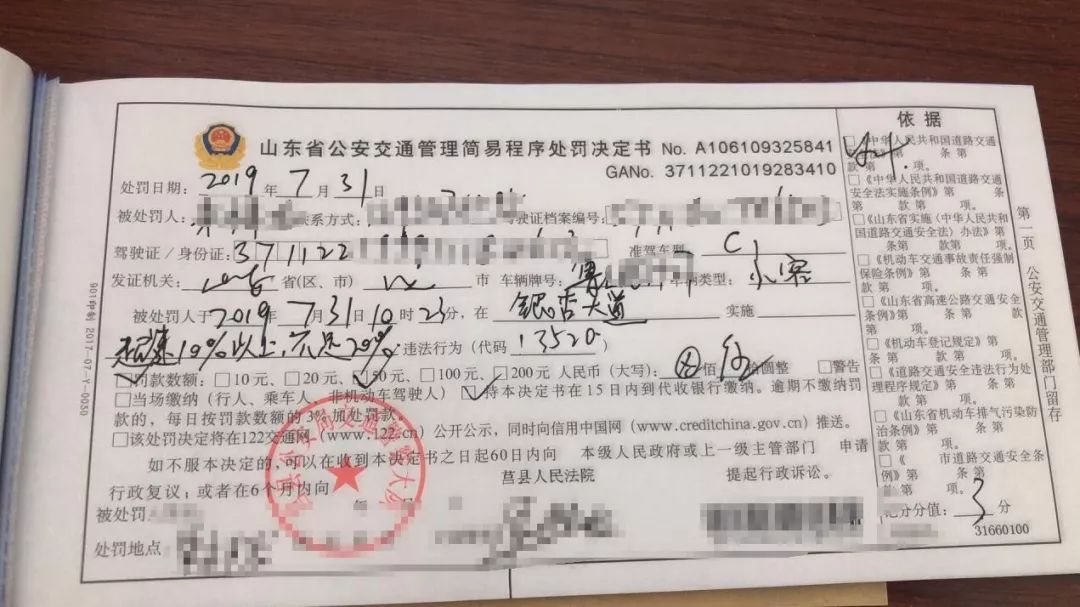 山东省公安交通管理简易程序处罚决定书 No. A106109325841
GANo. 3711221019283410
处罚日期：2019年7月31日
被处罚人： 联系方式： 驾驶证档案编号：
驾驶证／身份证：371122 准驾车型 C1
发证机关： 省(区、市) 市 车辆牌号：鲁 车辆类型：小客
被处罚人于2019年7月31日10时23分，在 银杏大道 实施
超速10%以上，不足20% 违法行为（代码 13520）
罚款数额：□10元、□20元、☑50元、□100元、□200元 人民币（大写）： 佰 伍 拾圆整 □警告
□当场缴纳（行人、乘车人、非机动车驾驶人）☑持本决定书在15日内到代收银行缴纳。逾期不缴纳罚
款的，每日按罚款数额的3%加处罚款。
□该处罚决定将在122交通网（www.122.cn）公开公示，同时向信用中国网（www.creditchina.gov.cn）推送。
如不服本决定的，可以在收到本决定书之日起60日内向 本级人民政府或上一级主管部门 申请
行政复议；或者在6个月内向 莒县人民法院 提起行政诉讼。
被处罚
处罚地点
依据
《中华人民共和国道路交通
法》第 条第
款第 项。
□《中华人民共和国道路交通
安全法实施条例》第 条
第 款第 项。
□《山东省实施〈中华人民共和
国道路交通安全法〉办法》第
条第 款第 项。
□《机动车交通事故责任强制
保险条例》第 条第
款第 项。
□《山东省高速公路交通安全
条例》第 条第 款第 项。
□《机动车登记规定》第
条第 款第 项。
□《道路交通安全违法行为处
理程序规定》第 条第
款第 项。
□《山东省机动车排气污染防
治条例》第 条第
款第 项。
□《 市道路交通安全条
例》第 条第
款第 项。
记分分值：3分
31660100
第一页 公安交通管理部门留存
901印制 2017-07-Y-0030